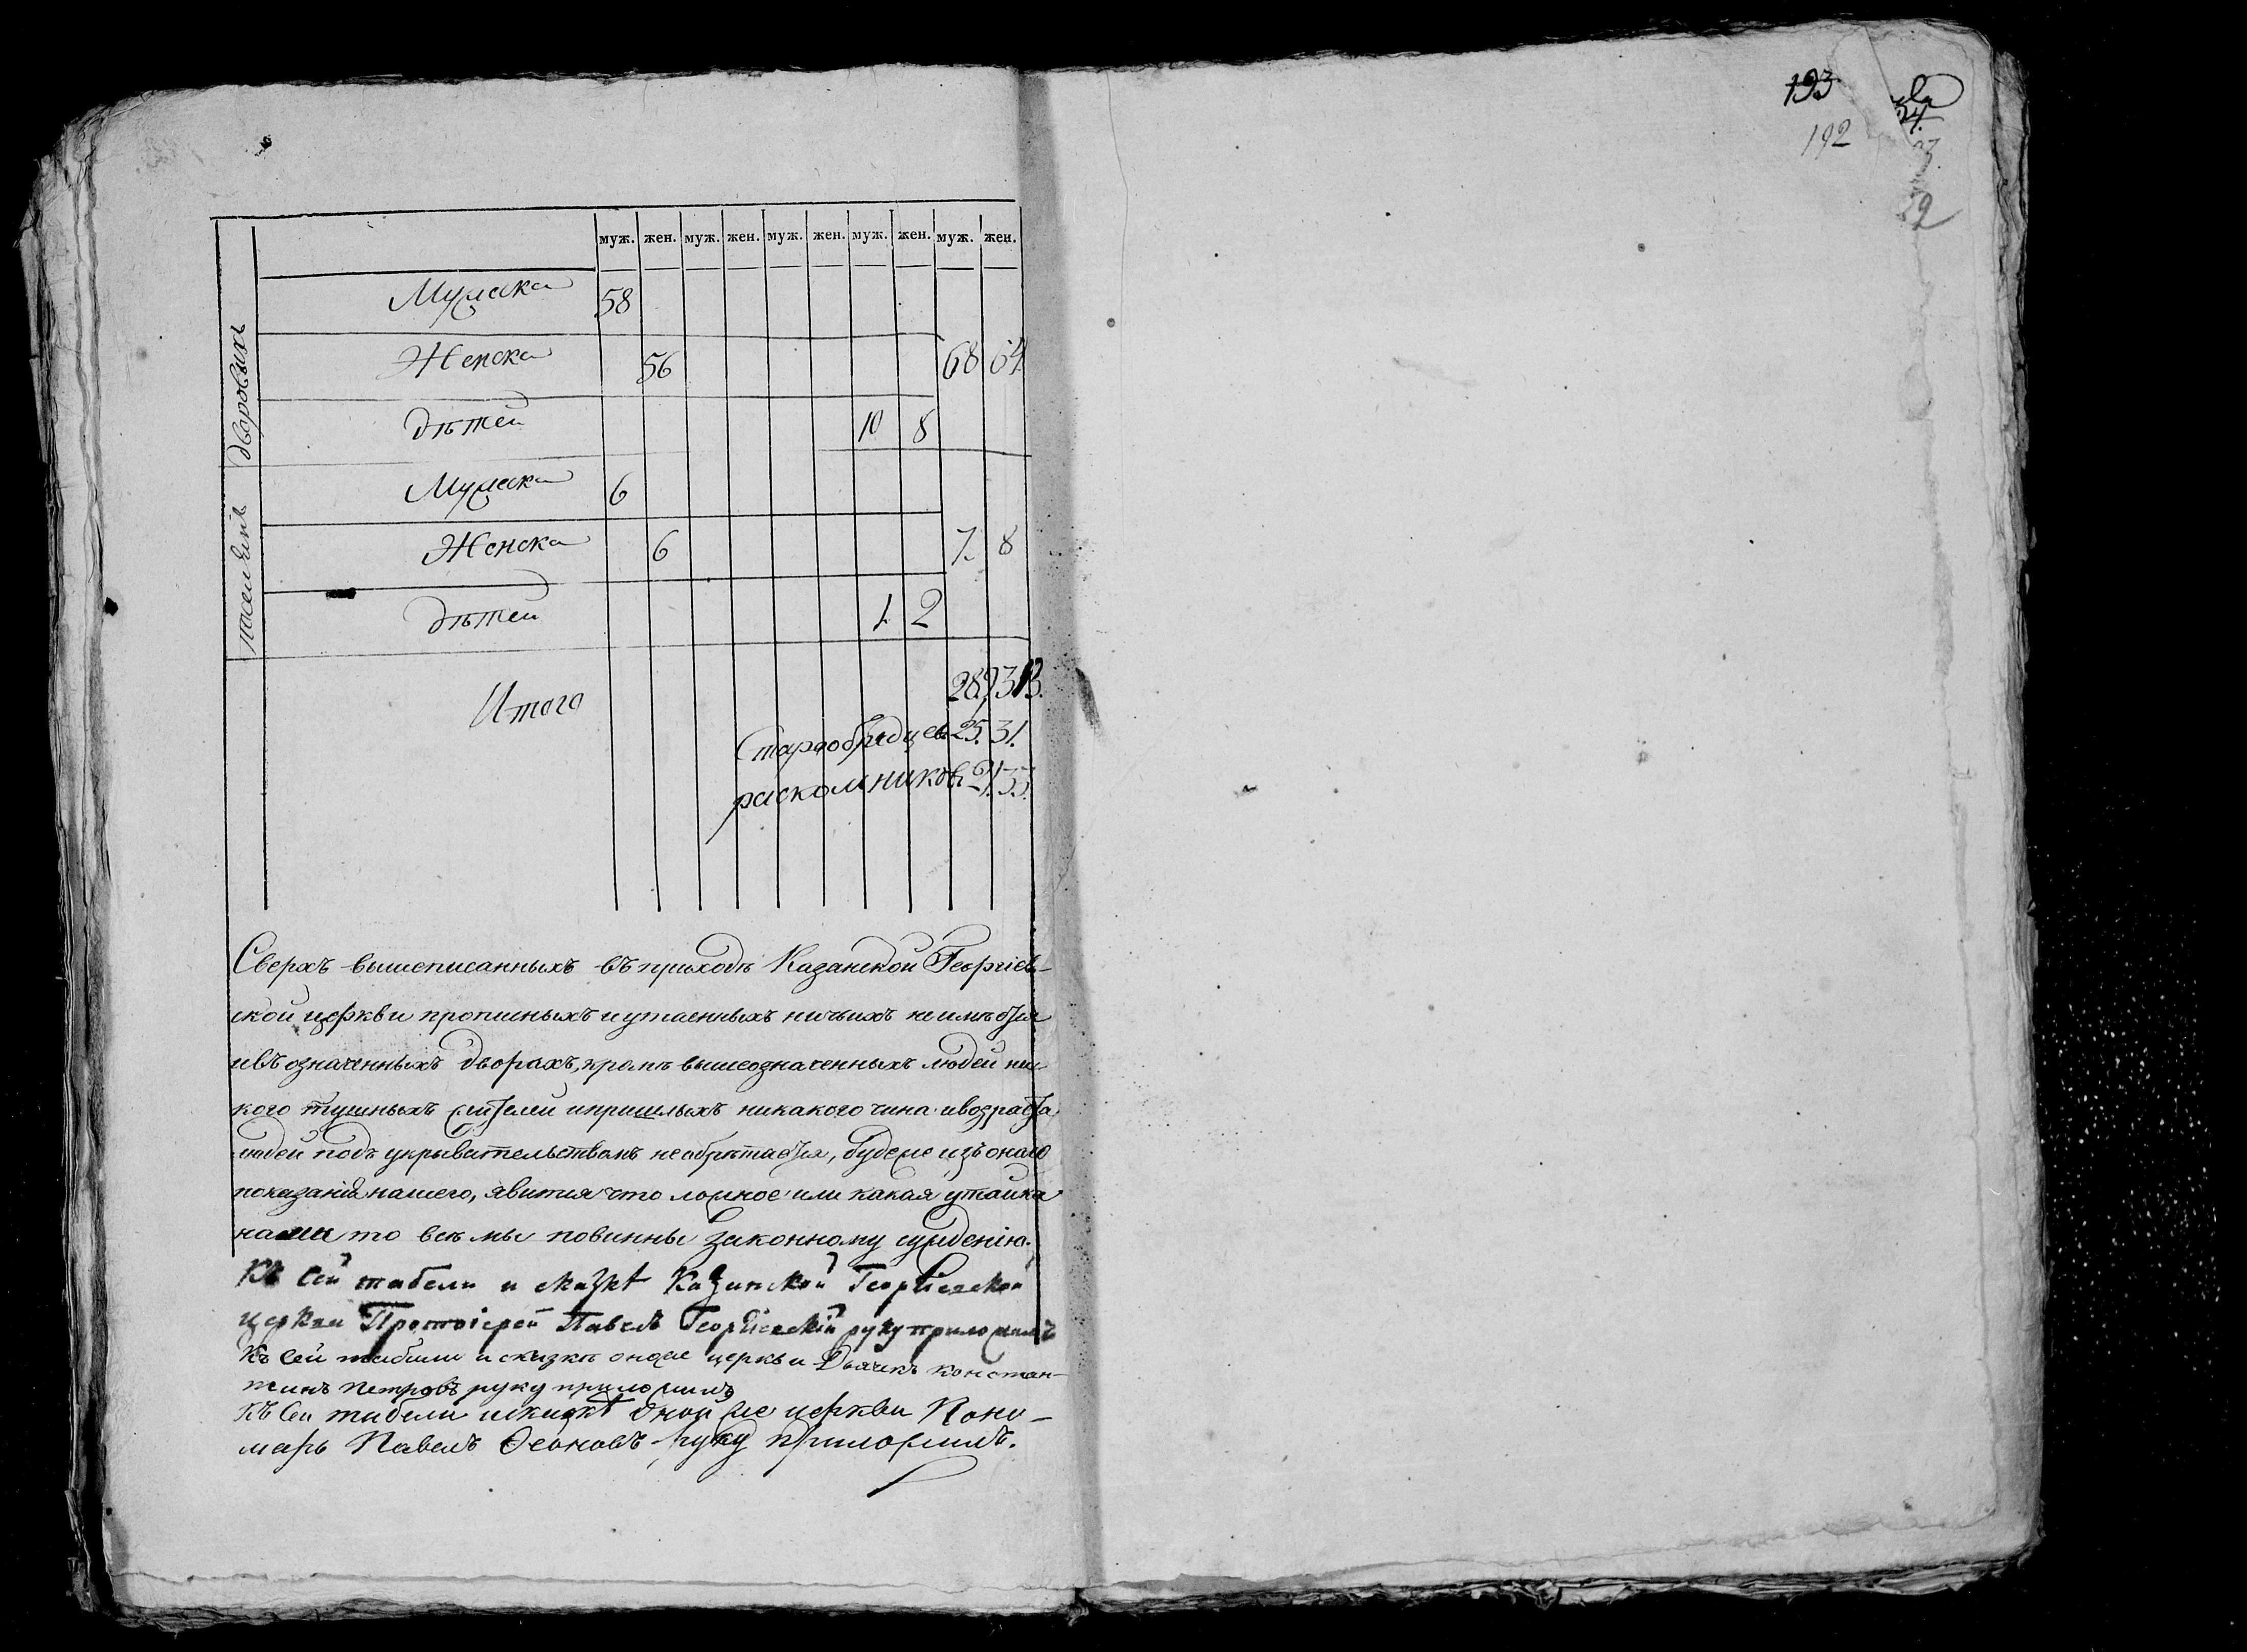 муж. жен. муж. жен. муж. жен. муж. жен. муж. жен.
дворовыхъ
Мужска 58
Женска 56 68 64
дѣтей 10 8
Мужска 6
Женска 6 7. 8
дѣтей 1. 2
Итого 289 313.
Старообрядцевъ 25. 31.
раскольниковъ 21. 33.
Сверхъ вышеписанныхъ въ приходѣ Казанской Георгіев-
ской церкви прописныхъ и утаенныхъ ничьихъ не имѣется
и въ означенныхъ дворахъ, кромѣ вышеозначенныхъ людей ни-
кого тушныхъ жителей и пришлыхъ никакого чина и возраста
людей подъ укрывательствомъ не обрѣтается, буде же изъ онаго
показанія нашего, явится что ложное или какая утайка
нами то всѣ мы повинны законному сужденію.
Къ сей табели и сказкѣ Казанской Георгіевской
церкви Протоіерей Павелъ Георгіевскій руку приложилъ
Къ сей табели и сказкѣ оной же церкви Дьячекъ Констан-
тинъ Петровъ руку приложилъ
Къ сей табели и сказкѣ оной же церкви Поно-
марь Павелъ Ѳеоновъ руку приложилъ.
193
192